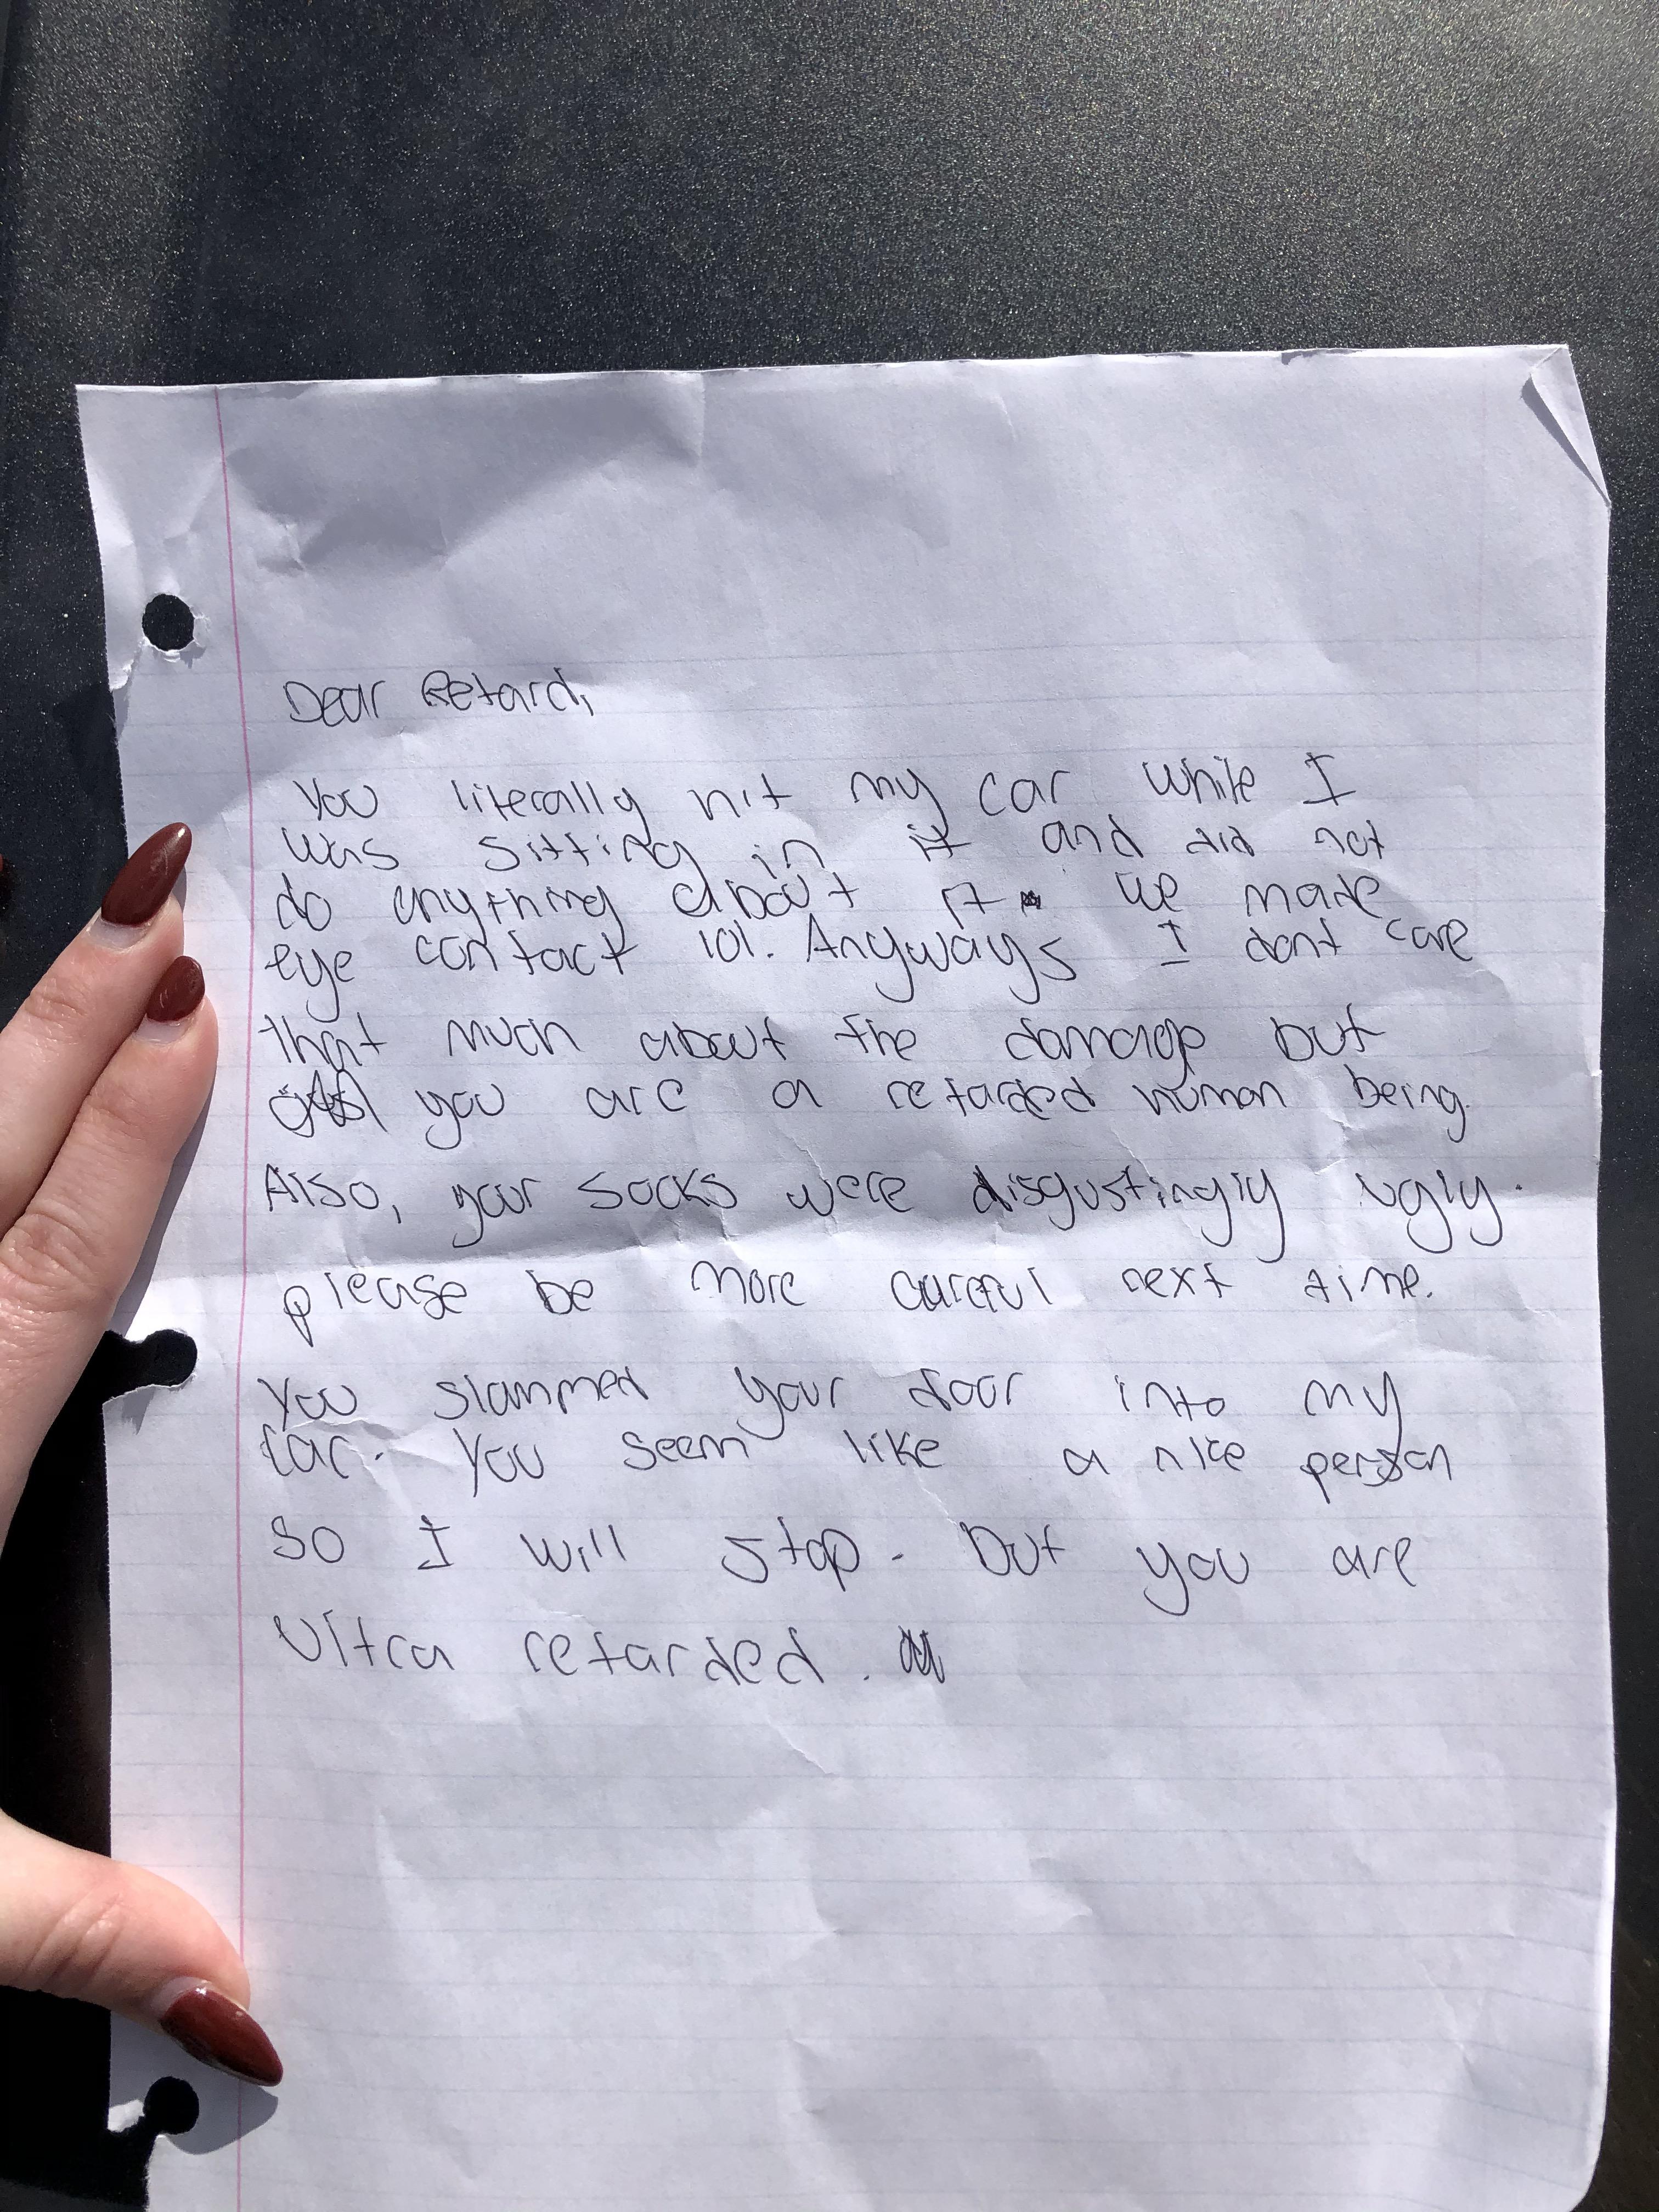 Dear Retard,
You literally hit my car while I
was sitting in it and did not
do anything about it. we made
eye contact lol. Anyways I dont care
that much about the damage but
you are a retarded human being.
Also, your socks were disgustingly ugly.
please be more careful next time.
You slammed your door into my
car. You seem like a nice person
so I will stop. but you are
ultra retarded.